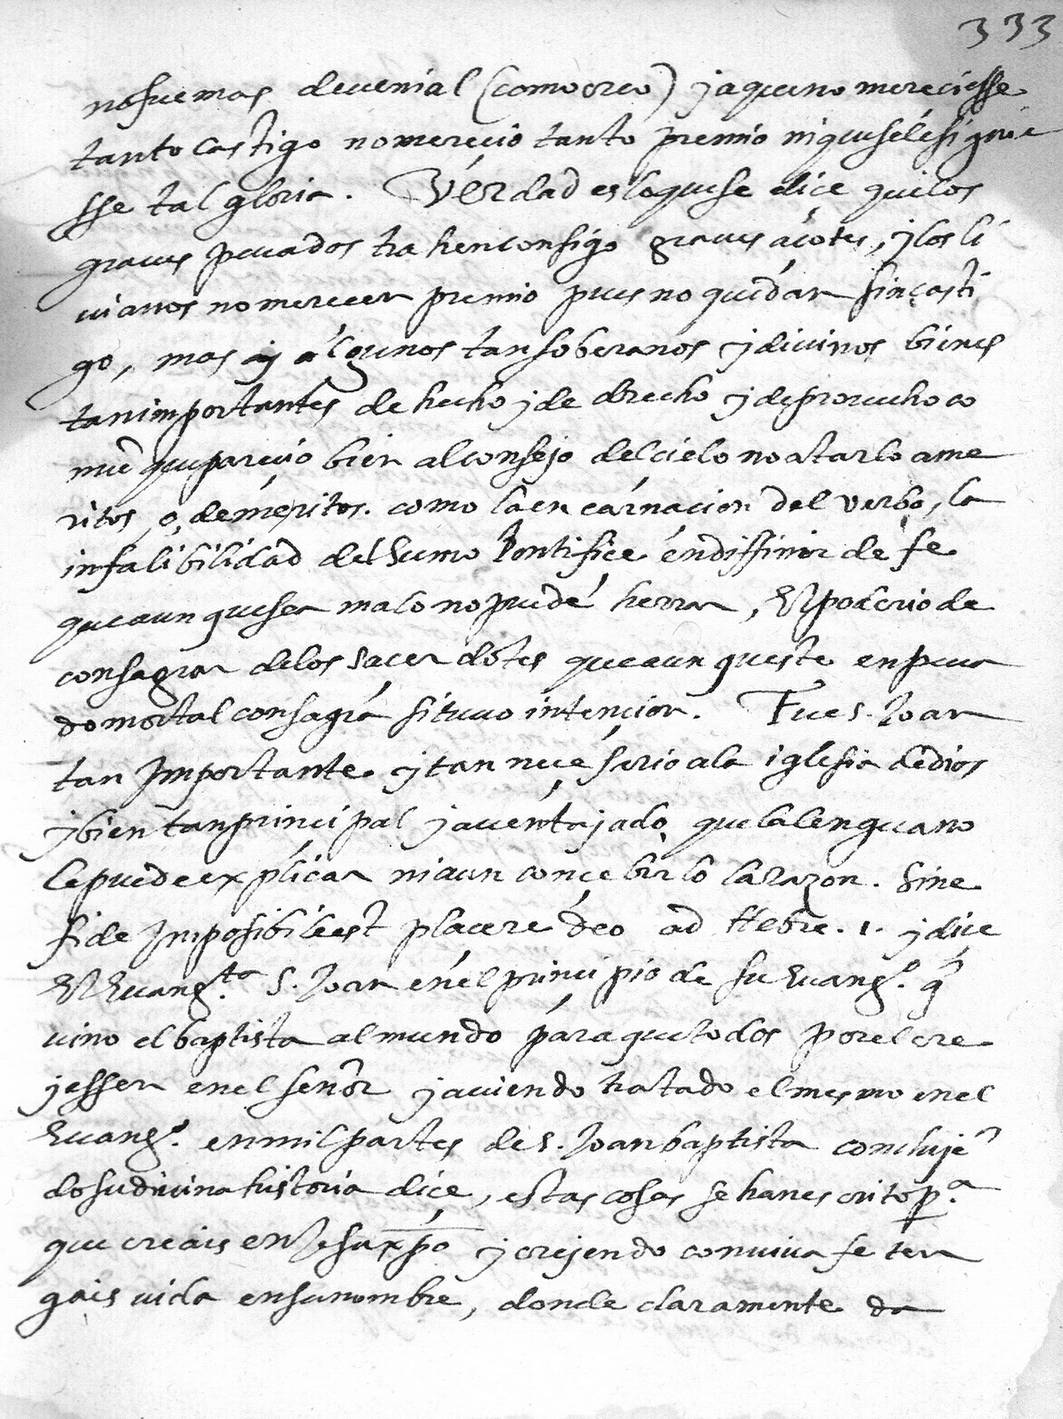 333
no fue mas de venial (como creo) y a que no mereciesse
tanto castigo no merecio tanto premio ni que se le siguie
sse tal gloria. Verdad es lo que se dice que los
graves pecados trahen consigo graves açotes, y los li
vianos no merecen premio pues no quedan sin casti
go, mas ay algunos tan soberanos y divinos bienes
tan importantes de hecho y de derecho y de provecho co
mũ que parecio bien al consejo del cielo no atarlo a me
ritos, o, demeritos. como la encarnacion del verbo, la
infalibilidad del Sumo Pontifice en diffinir de fe
que aunque sea malo no puede herrar, El poderio de
consagrar de los sacerdotes que aunque este en peca
do mortal consagra si tuvo intencion. Fue S. Joan
tan Importante y tan necesario a la iglesia de dios
y bien tan principal y aventajado que la lengua no
le puede explicar ni aun concebirlo la razon. Sine
fide Imposibile est placere deo ad Hebre. 1. y dice
El Evang.ta S. Joan en el principio de su Evang.o q̃
vino el baptista al mundo para que todos por el cre
yessen en el señor y aviendo tratado el mesmo en el
Evang.o en mil partes de S. Joan baptista concluyẽ
do su divina historia dice, estas cosas se han escrito p.a
que creais en Jesu xp̃o y creyendo con viva fe ten
gais vida en su nombre, donde claramente da